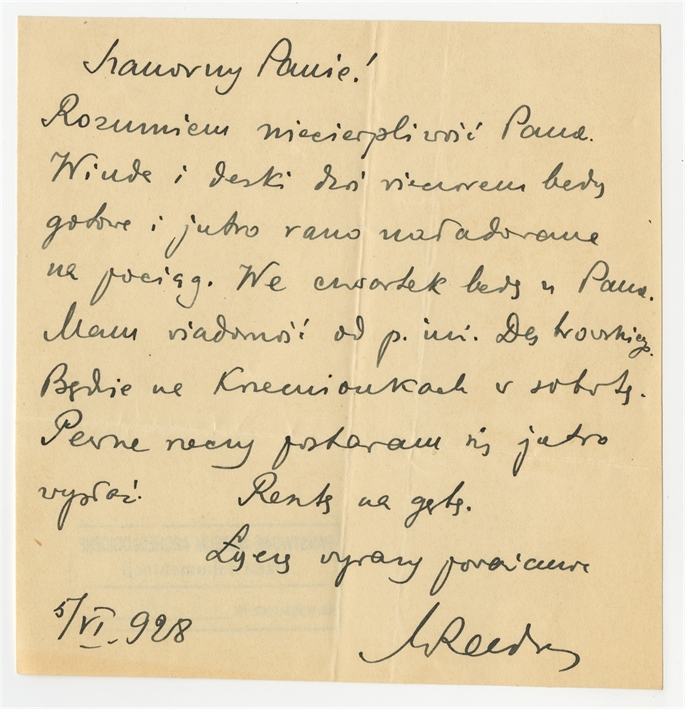 Szanowny Panie!
Rozumiem niecierpliwość Pana.
Winda i deski dziś wieczorem będą
gotowe i jutro rano naładowane
na pociąg. We czwartek będę u Pana.
Mam wiadomość od p. inż.
Będzie na Krzemionkach w sobotę.
Pewne rzeczy postaram się jutro
wysłać. Resztę na gębę.
Łączę wyrazy poważania
5/VI 928